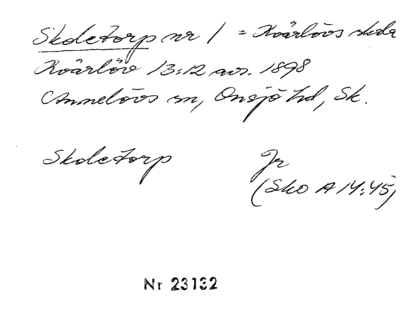 Skoletorp nr 1 = Kvärlövs skola
Kvärlöv 13:12 avs. 1898
Annelövs sn, Onsjö hd, Sk.
Skoletorp Jr
(Sko A 14:45)
Nr 23132